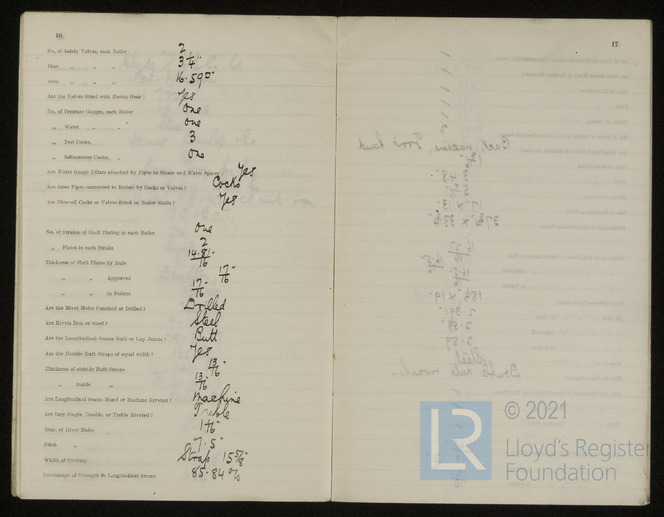 16
No. of Safety Valves, each Boiler 2
Diar. „ „ „ 3¼"
Area „ „ „ 16.59□"
Are the Valves fitted with Easing Gear? Yes
No. of Pressure Gauges, each Boiler One
„ Water „ „ One
„ Test Cocks, „ 3
„ Salinometer Cocks, „ One
Are Water Gauge Pillars attached by Pipes to Steam and Water Spaces? Yes
Are these Pipes connected to Boilers by Cocks or Valves? Cocks
Are Blow-off Cocks or Valves fitted on Boiler Shells? Yes
No. of Strakes of Shell Plating in each Boiler One
„ Plates in each Strake 2
Thickness of Shell Plates by Rule 14.81/16"
„ „ Approved 17/16"
„ „ in Boilers 17/16"
Are the Rivet Holes Punched or Drilled? Drilled
Are Rivets Iron or Steel? Steel
Are the Longitudinal Seams Butt or Lap Joints? Butt
Are the Double Butt Straps of equal width? Yes
Thickness of outside Butt Straps 13/16"
„ inside „ 13/16"
Are Longitudinal Seams Hand or Machine Riveted? Machine
Are they Single, Double, or Treble Riveted? Treble
Diar. of Rivet Holes
Pitch „ 7.5"
Width of Overlap Strap 15⅝"
Percentage of Strength in Longitudinal Seams 85.84%
17
© 2021
LR
Lloyd's Register
Foundation